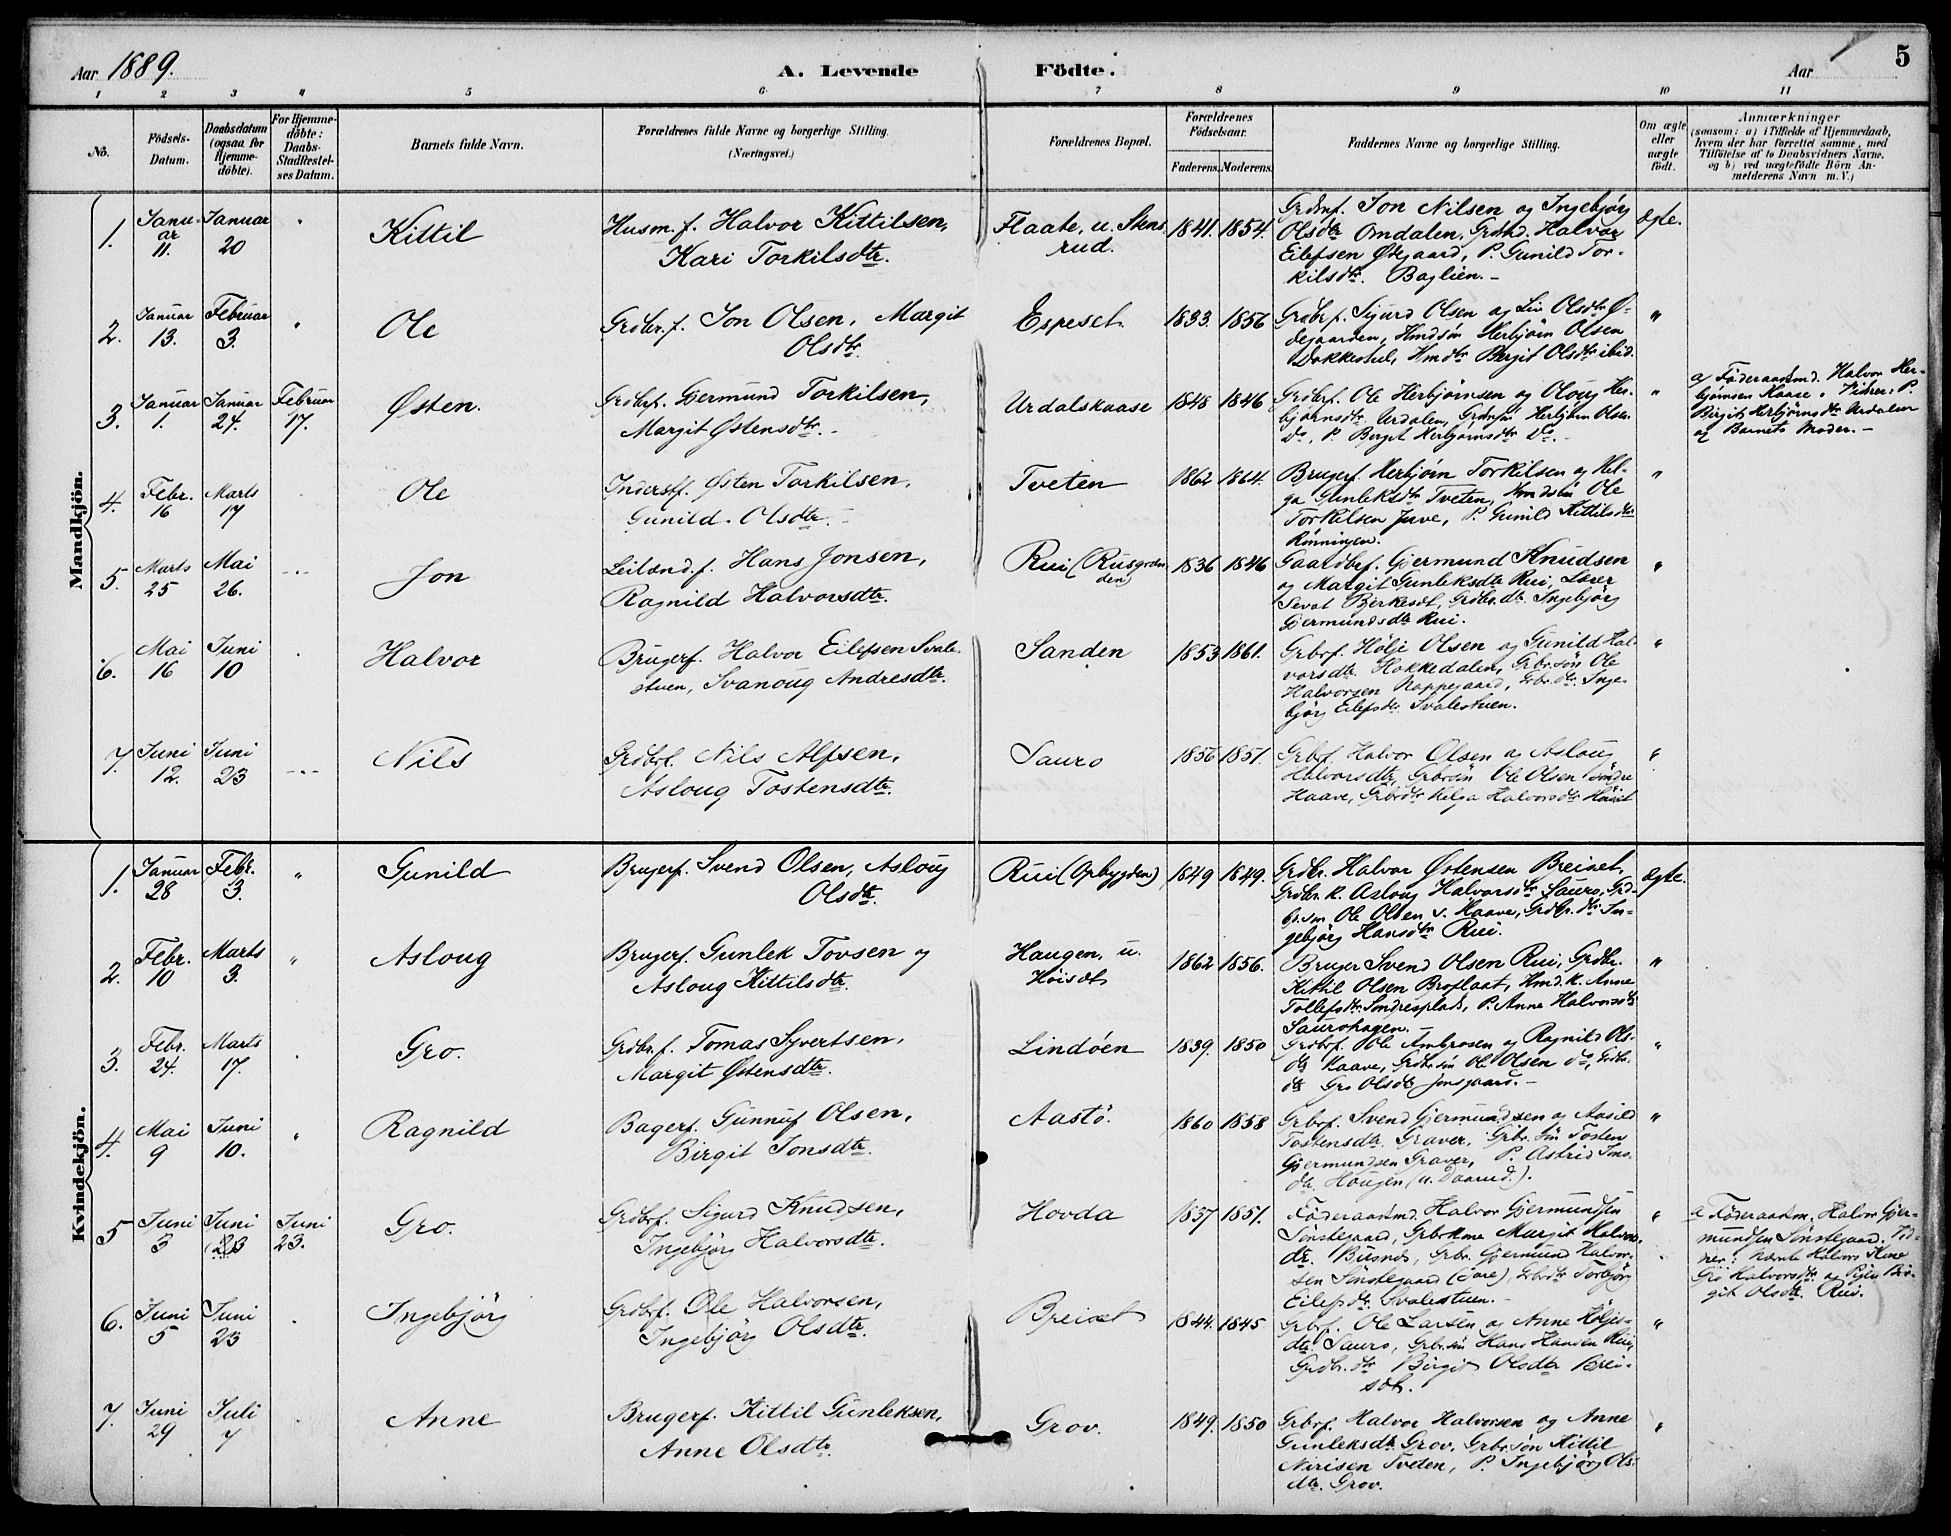 5
Aar 1889.
A. Levende Födte.
Aar
1 2 3 4 5 6 7 8 9 10 11
No.
Födsels-Datum.
Daabsdatum (ogsaa for Hjemme-döbte).
For Hjemme-döbte: Daabs-Stadfæstel-ses Datum.
Barnets fulde Navn.
Forældrenes fulde Navne og borgerlige Stilling.
(Næringsvei.)
Forældrenes Bopæl.
Forældrenes Födselsaar.
Faderens. Moderens.
Faddernes Navne og borgerlige Stilling.
Om ægte eller uægte födt.
Anmærkninger
(saasom: a) i Tilfælde af Hjemmedaab,
hvem der har forrettet samme, med
Tilföielse af to Daabsvidners Navne.
og b) ved uægtefödte Börn An-
melderens Navn m. V.)
Mandkjön.
1. Januar 11. Januar 20 " Kittil
Husm. f. Halvor Kittilsen,
Kari Torkilsdtr.
Flaate, u. Stens
rud.
1841. 1854.
Grdmf. Jon Nilsen og Ingebjørg
Olsdtr Omdalen, Grmd. Halvor
Eilefsen Øigaard, P. Gunild Tor-
kilsdtr. Baglien. –
Ægte.
2. Januar 13. Februar 3. " Ole
Grdbr. f. Jon Olsen, Margit
Olsdtr.
Espeset.
1833. 1856
Grdbr f. Sigurd Olsen og Liv Olsdtr Ø-
degaarden, Kmdsøn Herbjörn Olsen
Dokkestul, Kmdtr Bergit Olsdtr ibid.
"
3. Januar 1. Januar 24. Februar 17. Østen.
Grdbrf. Gjermund Torkilsen,
Margit Østensdtr. –
Urdalskaase
1848 1846
Grdbrf. Ole Herbjørnsen og Oloug Her-
bjørnsdtr Urdalen, Grdmsøn Herbjørn Olsen
Do, P. Berget Herbjørnsdtr Do. –
"
a) Føderaadsmd. Halvor Her-
bjørnsen Kaase. Vidner: P.
Birgit Herbjørnsdtr Urdalen
og Barnets Moder. –
4. Febr. 16 Marts 17 Ole
Inderstf. Østen Torkilsen,
Gunild Olsdtr. –
Tveten
1862 1864.
Brugerf. Herbjörn Torkilsen og Hel-
ga Gunleksdtr Tveten, Kmdsön Ole
Torkilsen Juve, P. Gunild Kittilsdtr
Rønningen.
"
5. Marts 25 Mai 26. Jon
Leilænd. f. Hans Jonsen,
Ragnild Halvorsdtr.
Rui (Rusgrden
den)
1836 1846
Gaardbrf. Gjermund Knudsen
og Margit Gunleksdtr Rui, Lærer
Sevat Bjerkesdt, Grdbr.dtr Ingebjørg
Gjermundsdtr Rui.
"
6. Mai 16 Juni 10 Halvor
Brugerf. Halvor Eilefsen Svale-
stuen, Svanoug Andresdtr.
Sanden
1853 1861.
Grbrf. Hølje Olsen og Gunild Hal-
vorsdtr Hokkedalen, Grbr.søn Ole
Halvorsen Noppegaard, Grbr.dtr. Inge-
bjørg Eilefsdtr Svalestuen.
"
7. Juni 12. Juni 23 Nils
Grdbrf. Nils Alfsen,
Asloug Tostensdtr.
Sauro
1856 1851.
Grbrf. Halvor Olsen og Asloug
Halvorsdtr, Grbrsøn Ole Olsen Søndre
Haave, Grbrdtr Helga Halvorsdtr
"
Kvindekjön.
1. Januar 28 Febr. 3. " Gunild
Brugerf. Svend Olsen, Asloug
Olsdtr.
Rui (Opbygden)
1849 1849.
Grdbr. Halvor Østensen Breiset,
Grdbr. K. Asloug Halvorsdtr Sauro, Grd-
br.søn Ole Olsen s. Haave, Grdbr. dtr In-
gebjörg Hansdtr Rui.
ægte.
2. Febr. 10 Marts 3. " Asloug
Brugerf. Gunlek Tovsen og
Asloug Kittilsdtr.
Haugen, u.
Höisdt
1862 1856.
Bruger Svend Olsen Rui, Grdbr.
Kittil Olsen Broflaat, Kmd. K. Anne
Tollefsdtr Sondresplads, P. Anne Halvorsdtr
Saurohagen.
"
3. Febr. 24. Marts 17. Gro.
Grdbr. f. Tomas Syvertsen,
Margit Østensdtr.
Lindöen
1839. 1850
Grdbrf. Ole Ambrosen og Ragnild Ols-
dtr Haave, Grdbr søn Ole Olsen do, Grdbr.
dtr Gro Olsdtr Jonsgaard. –
"
4. Mai 9 Juni 10. " Ragnild
Bagerf. Gunnuf Olsen,
Birgit Jonsdtr.
Aastö.
1860 1858
Grbrf. Svend Gjermundsen og Aasild
Tostensdtr Graver, Grbr. søn Tosten
Gjermundsen Graver, P. Astrid Jons-
dtr. Haugen (u. Daarud.).
"
5 Juni 3 Juni (23) Juni 23. Gro.
Grdbrf. Sigurd Knudsen,
Ingebjørg Halvorsdtr.
Hovda
1837 1851.
Föderaadsmd. Halvor Gjermundsen
Sönstegaard, Grbr.kone Margit Halvors
dtr. Busnes, Grbr. Gjermund Halvor-
sen Sönstegaard (Tore), Grbrdtr Torbjørg
Eilefsdtr Svalestuen. –
"
a Föderaadsm. Halvor Gjer-
mundsen Sönstegaard. Vid-
ner: nævnte Halvors Kone
Gro Halvorsdtr og Pigen Bir-
git Olsdtr. Rui.
6. Juni 5 Juni 23 Ingebjörg
Grdbrf. Ole Halvorsen,
Ingebjörg Olsdtr.
Breiset
1844. 1845
Grbrf. Ole Larsen og Anne Höljes-
dtr Sauro, Grbr.søn Hans Hansen Rui,
Grdbr. dtr Birgit Olsdtr Brei-
sdt.
"
7. Juni 29 Juli 7 Anne
Brugerf. Kittil Gunleksen,
Anne Olsdtr.
Grov.
1849. 1850
Grbrf. Halvor Halvorsen og Anne
Gunleksdtr Grov, Grbr.søn Kittil
Nirisen Tveten, P. Ingebjörg Ols-
dtr. Grov.
"